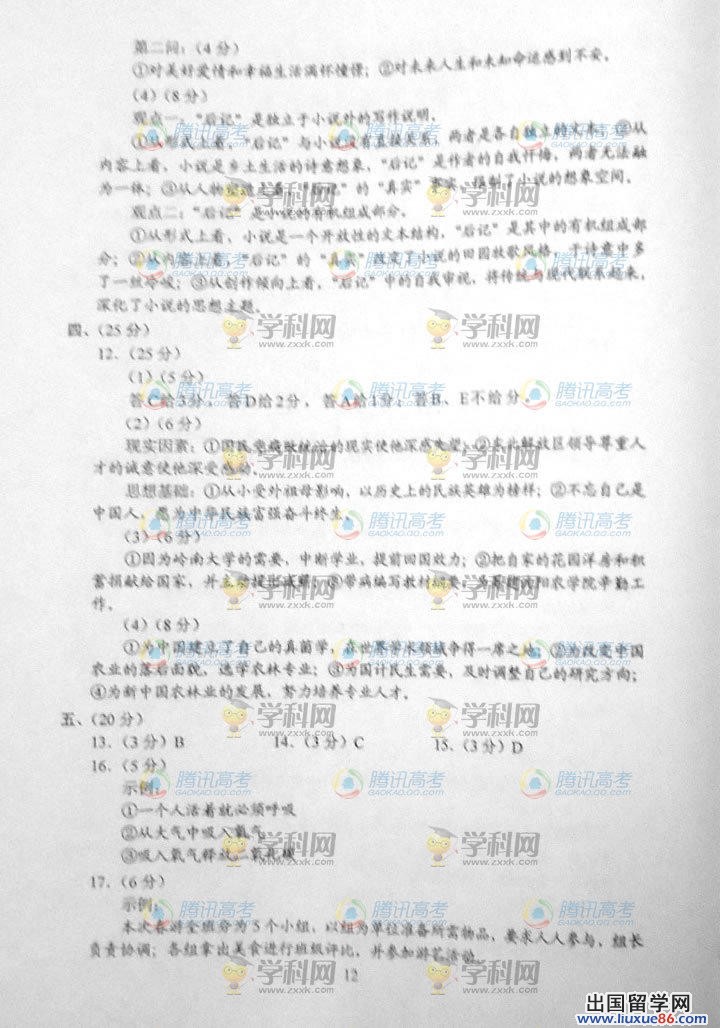 第二问:(4分)
①对美好爱情和幸福生活满怀憧憬;②对未来人生和未知命运感到不安。
(4)(8分)
观点一:“后记”是独立于小说外的写作说明。
①从形式上看,“后记”与小说没有直接关系,两者是各自独立的文本;②从
内容上看,小说是乡土生活的诗意想象,“后记”是作者的自我忏悔,两者无法融
为一体;③从人物塑造上看,“后记”的“真实”事实,限制了小说的想象空间。
观点二:“后记”是小说的有机组成部分。
①从形式上看,小说是一个开放性的文本结构,“后记”是其中的有机组成部
分;②从内容上看,“后记”的“真实”改变了小说的田园牧歌风格,于诗意中多
了一丝冷峻;③从创作倾向上看,“后记”中的自我审视,将传统与现代联系起来,
深化了小说的思想主题。
四、(25分)
12.(25分)
(1)(5分)
答C给3分,答D给2分,答A给1分;答B、E不给分。
(2)(6分)
现实因素:①国民党腐败统治的现实使他深感失望;②东北解放区领导尊重人
才的诚意使他深受感动。
思想基础:①从小受外祖母影响,以历史上的民族英雄为榜样;②不忘自己是
中国人,愿为中华民族富强奋斗终生。
(3)(6分)
①因为岭南大学的需要,中断学业,提前回国效力;②把自家的花园洋房和积
蓄捐献给国家,并主动提出减薪;③带病编写教材纲要,为筹建沈阳农学院辛勤工
作。
(4)(8分)
①为中国建立了自己的真菌学,在世界学术领域争得一席之地;②为改变中国
农业的落后面貌,选学农林专业;③为国计民生需要,及时调整自己的研究方向;
④为新中国农林业的发展,努力培养专业人才。
五、(20分)
13.(3分)B 14.(3分)C 15.(3分)D
16.(5分)
示例:
①一个人活着就必须呼吸
②从大气中吸入氧气
③吸入氧气释放二氧化碳
17.(6分)
示例:
本次春游全班分为5个小组,以组为单位准备所需物品,要求人人参与,组长
负责协调;各组拿出美食进行班级评比,并参加游艺活动。
12
出国留学网
www.liuxue86.com